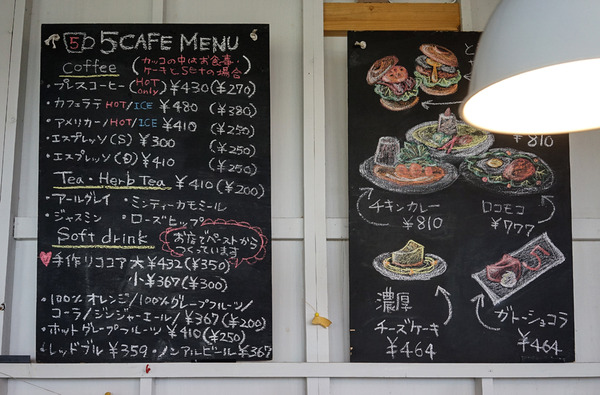 5 5 CAFE MENU
Coffee (カッコの中はお食事・ケーキとSetの場合)
・プレスコーヒー(HOT only) ¥430 (¥270)
・カフェラテ HOT/ICE ¥480 (¥380)
・アメリカーノ HOT/ICE ¥410 (¥250)
・エスプレッソ(S) ¥300 (¥250)
・エスプレッソ(D) ¥410 (¥250)
Tea・Herb Tea ¥410 (¥200)
・アールグレイ ・ミンティーカモミール
・ジャスミン ・ローズヒップ
Soft drink お店でペーストからつくっています
手作りココア 大 ¥432 (¥350)
小 ¥367 (¥300)
・100%オレンジ/100%グレープフルーツ/
コーラ/ジンジャーエール/ ¥367 (¥200)
・ホットグレープフルーツ ¥410 (¥250)
・レッドブル ¥359 ・ノンアルビール ¥367
¥810
チキンカレー
¥810
ロコモコ
¥777
濃厚
チーズケーキ
¥464
ガトーショコラ
¥464